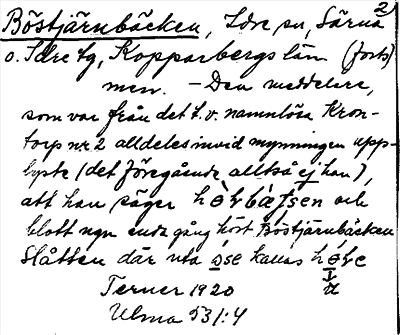 2
Böstjärnbäcken, Idre sn, Särna
o. Idre tg, Kopparbergs län (forts)
men. – Den meddelare,
som var från det t.v. namnlösa Kron-
torp nr 2 alldeles invid mynningen upp-
lyste (det föregående alltså ej han),
att han säger och
blott ngn enda gång hört Böstjärnbäcken
Slåtten där uta åse kallas
Terner 1920
Ulma 531:4